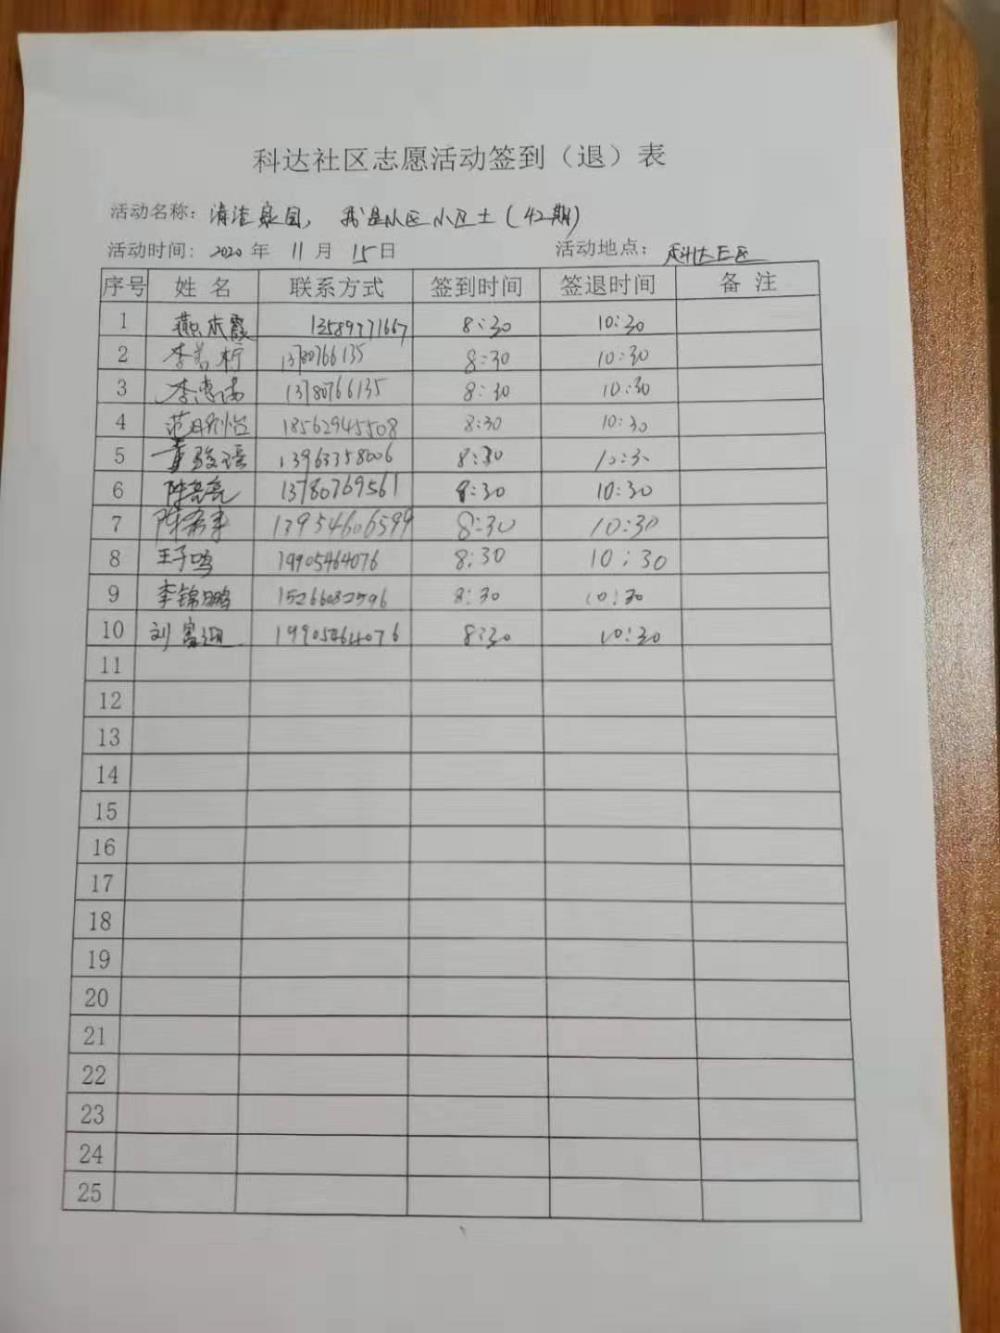 科达社区志愿活动签到（退）表
活动名称： 清洁家园， 我是小区小卫士（42期）
活动时间: 2020 年 11 月 15日 活动地点： 科达社区
序号 姓 名 联系方式 签到时间 签退时间 备 注
1 燕 霞 13589771667 8:30 10:30
2 李 13780766135 8:30 10:30
3 李 13780766135 8:30 10:30
4 范 怡 18562945508 8:30 10:30
5 黄 瑶 8:30 10:30
6 陈亮亮 13780769561 8:30 10:30
7 陈 13954606599 8:30 10:30
8 王子鸣 19905464076 8:30 10:30
9 李锦鹏 15266082596 8:30 10:30
10 刘 19905464076 8:30 10:30
11
12
13
14
15
16
17
18
19
20
21
22
23
24
25